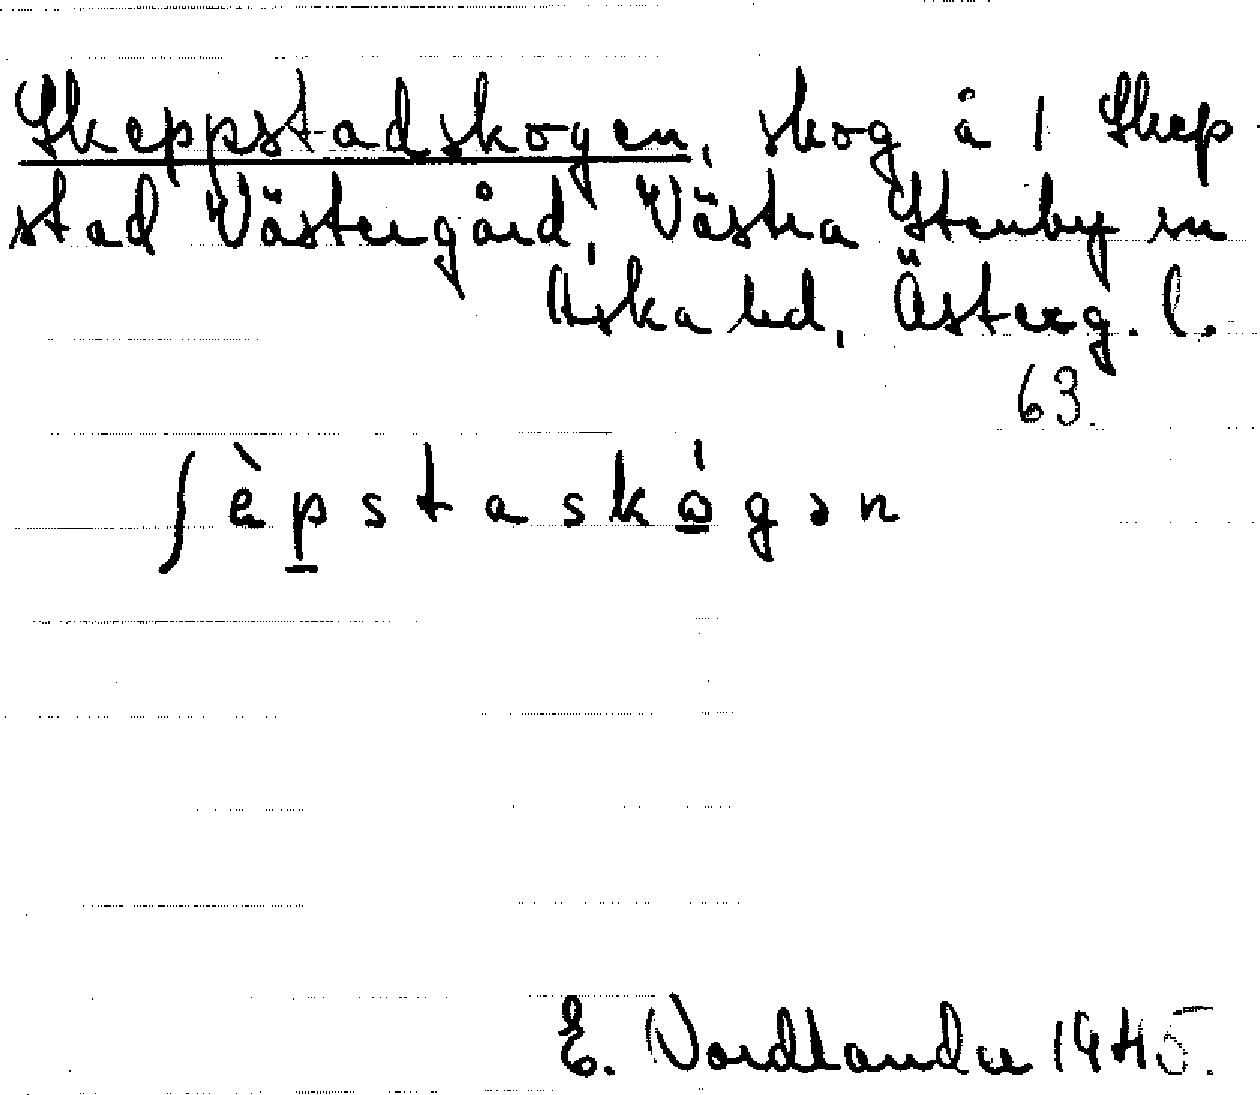 Skeppstadskogen, skog å 1 Skep-
stad Västergård, Västra Stenby sn
Aska hd, Österg. l.
63.
ʃèpstaskǫ́gən
E. Nordlander 1945.